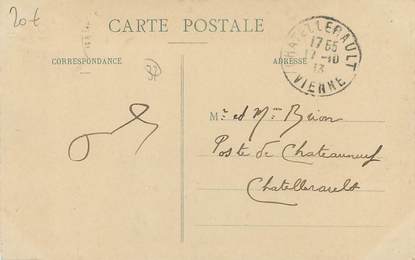 20€
CARTE POSTALE
CORRESPONDANCE
ADRESSE
CHATELLERAULT
17 55
17-10
13
VIENNE
Mr et Mme
Poste de Chateauneuf
Chatellerault